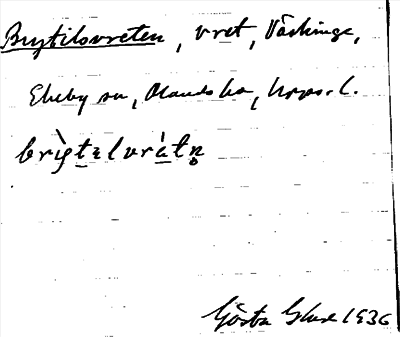 Brytilsvreten, vret, Väskinge,
Ekeby sn, Olands hd, Upps. l.
brỳtelvràtn̥
Gösta 1936